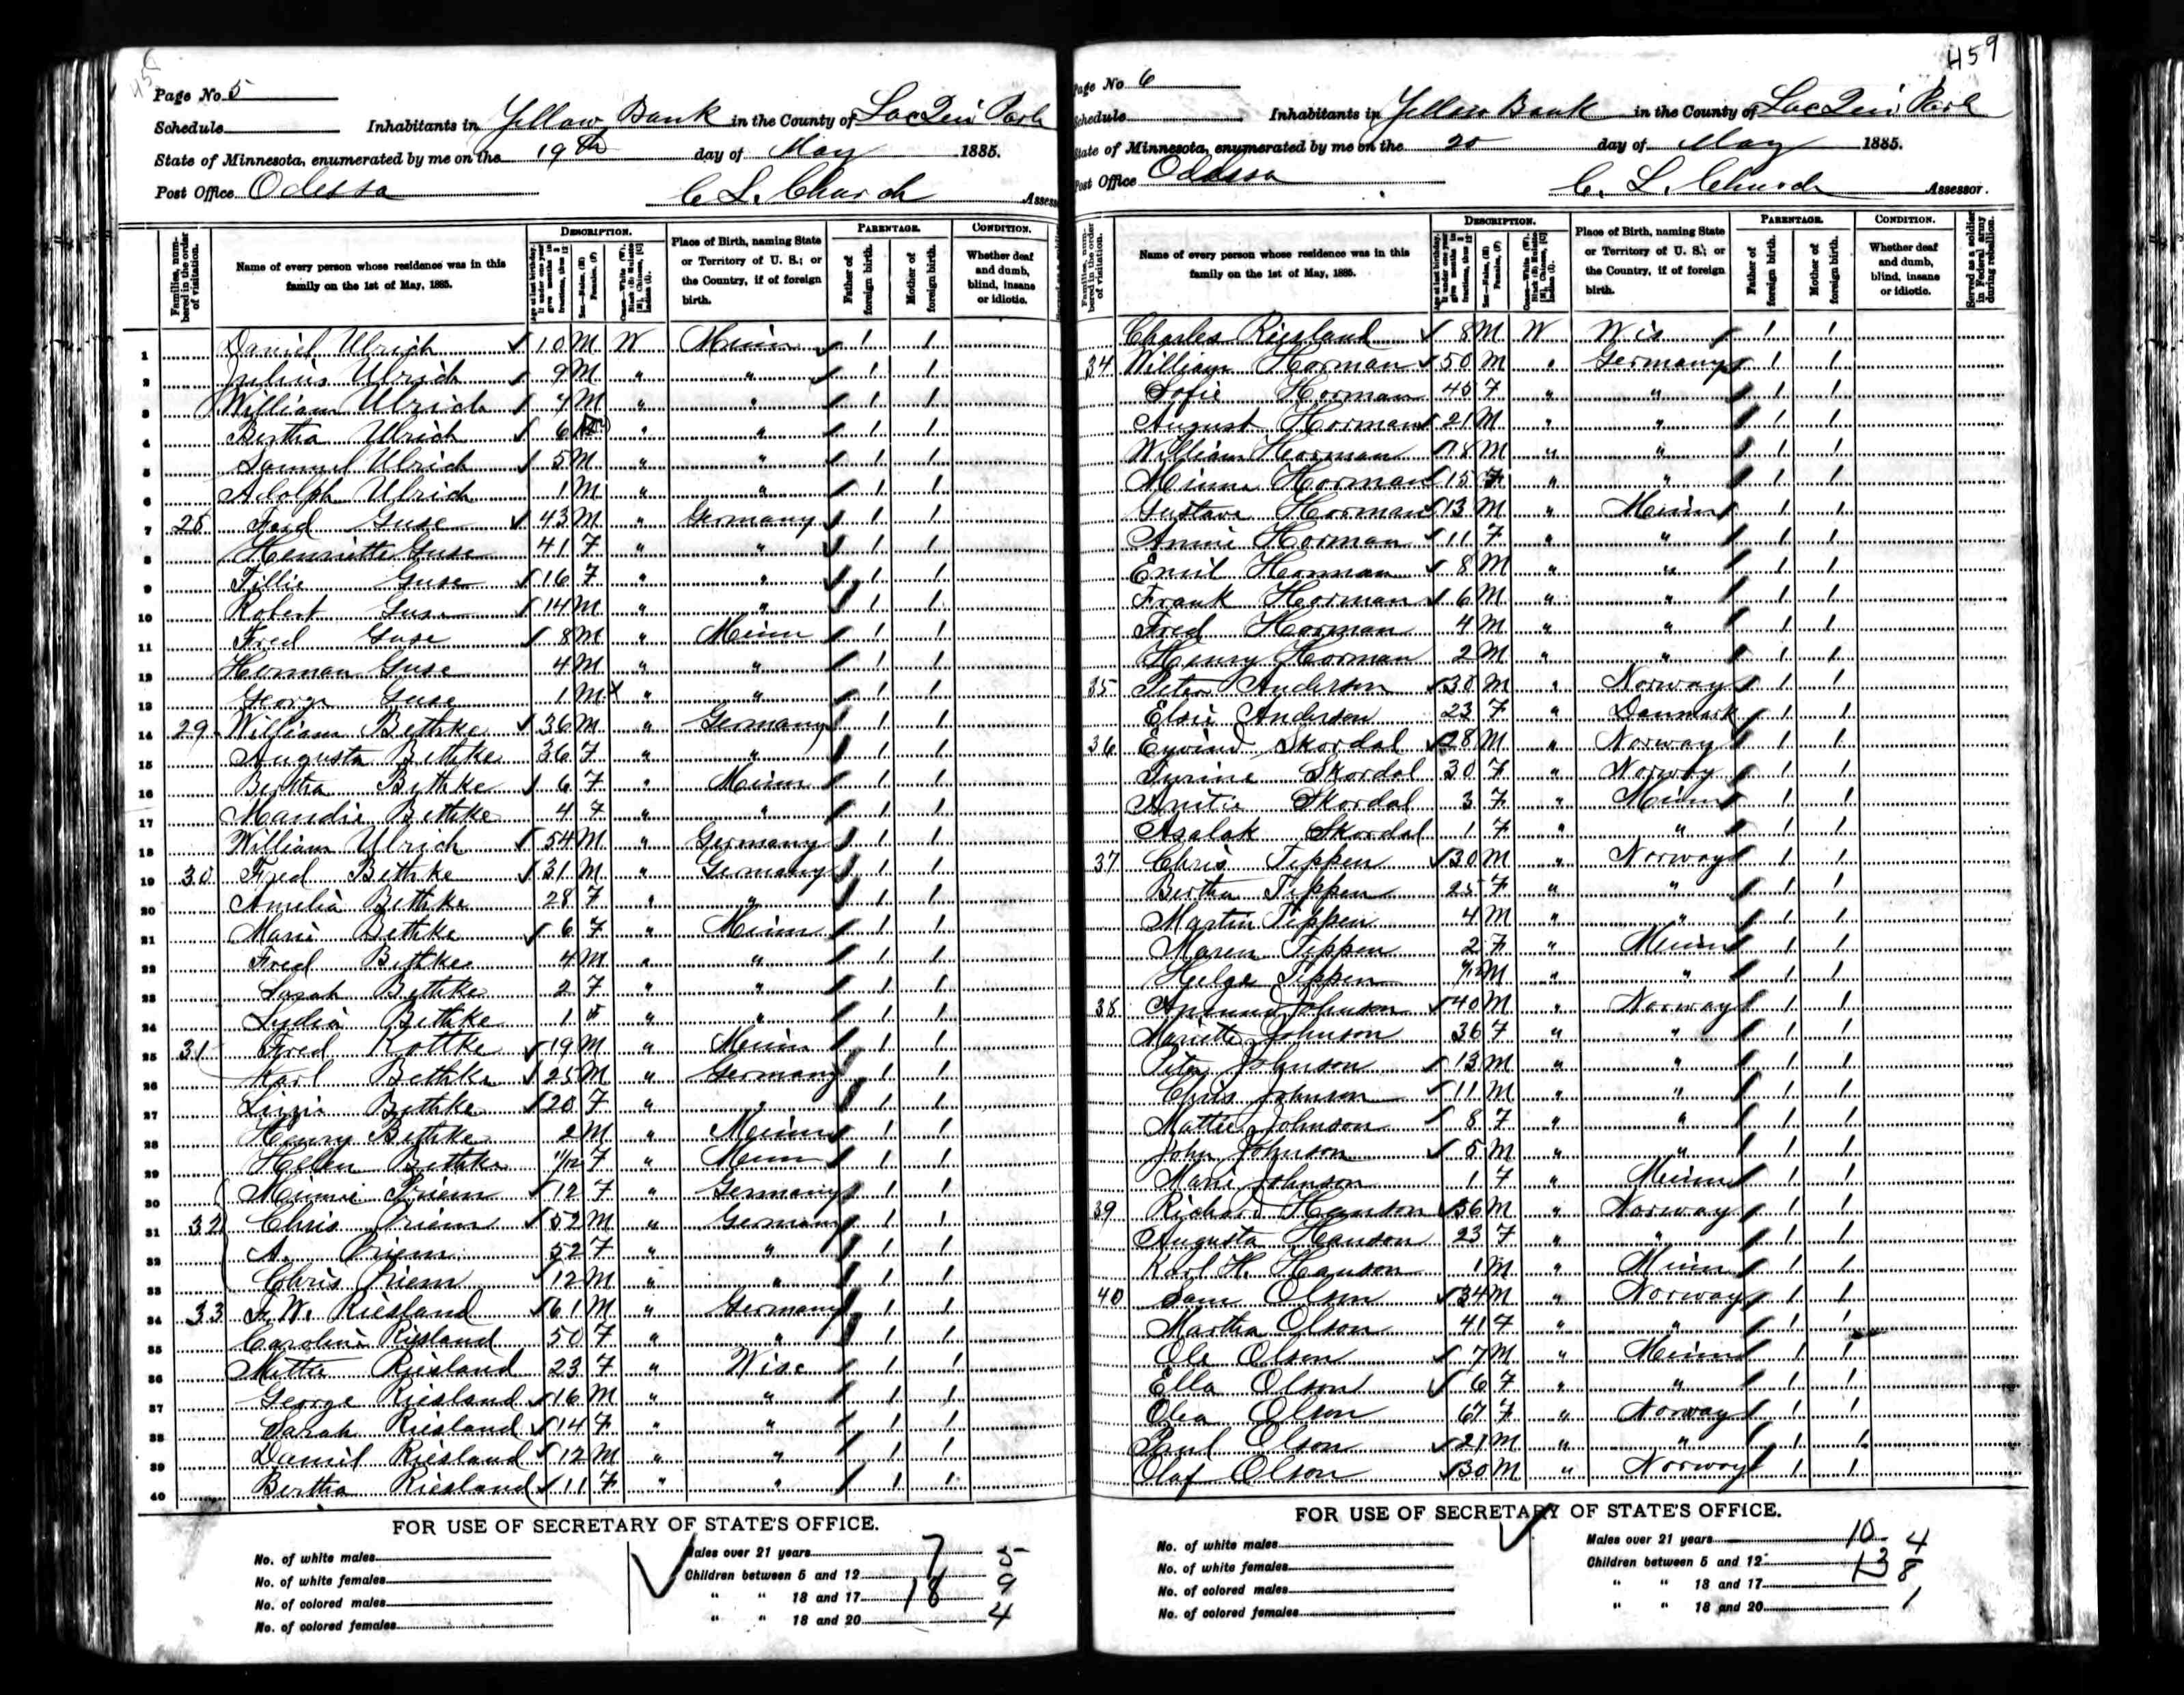 458
Page No. 5
Schedule Inhabitants in Yellow Bank in the County of Lac Qui Parle
State of Minnesota, enumerated by me on the 19th day of May 1885.
Post Office Odessa C L. Church Assessor
Families, numbered in the order of visitation.
Name of every person whose residence was in this family on the 1st of May, 1885.
DESCRIPTION.
Place of Birth, naming State or Territory of U. S.; or the Country, if of foreign birth.
PARENTAGE.
Father of foreign birth.
Mother of foreign birth.
CONDITION.
Whether deaf and dumb, blind, insane or idiotic.
1 Daniel Ulrich 10 M W Minn 1 1
2 Julius Ulrich 9 M " " 1 1
3 William Ulrich 7 M " " 1 1
4 Bertha Ulrich 6 " " 1 1
5 Samuel Ulrich 5 M " " 1 1
6 Adolph Ulrich 1 M " " 1 1
7 28 Fred Guse 43 M " Germany 1 1
8 Henriette Guse 41 F " " 1 1
9 Tillie Guse 16 F " " 1 1
10 Robert Guse 14 M " " 1 1
11 Fred Guse 8 M " Minn 1 1
12 Herman Guse 4 M " " 1 1
13 George Guse 1 M x " " 1 1
14 29 William Bethke 36 M " Germany 1 1
15 Augusta Bethke 36 F " " 1 1
16 Bertha Bethke 6 F " Minn 1 1
17 Mandie Bethke 4 F " " 1 1
18 William Ulrich 54 M " Germany 1 1
19 30 Fred Bethke 31 M " Germany 1 1
20 Amelia Bethke 28 F " " 1 1
21 Marie Bethke 6 F " Minn 1 1
22 Fred Bethke 4 M " " 1 1
23 Sarah Bethke 2 F " " 1 1
24 Lydia Bethke 1 F " " 1 1
25 31 Fred Kottke 19 M " Minn 1 1
26 Karl Bethke 25 M " Germany 1 1
27 Lizzie Bethke 20 F " " 1 1
28 Henry Bethke 2 M " Minn 1 1
29 Hellen Bethke 11/12 F " Minn 1 1
30 Minnie Priem 12 F " Germany 1 1
31 32 Chris Priem 52 M " Germany 1 1
32 A. Priem 52 F " " 1 1
33 Chris Priem 12 M " " 1 1
34 33 F. W. Riesland 61 M " Germany 1 1
35 Caroline Riesland 50 F " " 1 1
36 Mattie Riesland 23 F " Wisc 1 1
37 George Riesland 16 M " " 1 1
38 Sarah Riesland 14 F " " 1 1
39 Daniel Riesland 12 M " " 1 1
40 Bertha Riesland 11 F " " 1 1
FOR USE OF SECRETARY OF STATE'S OFFICE.
No. of white males
No. of white females
No. of colored males
No. of colored females
Males over 21 years 7 5
Children between 5 and 12 9
" " 18 and 17 18
" " 18 and 20 4
459
Page No 6
Schedule Inhabitants in Yellow Bank in the County of Lac Qui Parle
State of Minnesota, enumerated by me on the 20 day of May 1885.
Post Office Odessa C. L. Church Assessor.
Families, numbered in the order of visitation.
Name of every person whose residence was in this family on the 1st of May, 1885.
DESCRIPTION.
Place of Birth, naming State or Territory of U. S.; or the Country, if of foreign birth.
PARENTAGE.
Father of foreign birth.
Mother of foreign birth.
CONDITION.
Whether deaf and dumb, blind, insane or idiotic.
Served as a soldier in Federal army during rebellion.
Charles Riesland 8 M W Wis 1 1
34 William Horman 50 M " Germany 1 1
Sofie Horman 45 F " " 1 1
August Horman 21 M " " 1 1
William Horman 18 M " " 1 1
Minna Horman 15 F " " 1 1
Gustave Horman 13 M " Minn 1 1
Annie Horman 11 F " " 1 1
Emil Horman 8 M " " 1 1
Frank Horman 6 M " " 1 1
Fred Horman 4 M " " 1 1
Henry Horman 2 M " " 1 1
35 Peter Anderson 38 M " Norway 1 1
Elsie Anderson 23 F " Denmark 1 1
36 Eyvind Skordal 28 M " Norway 1 1
Turine Skordal 30 F " Norway 1 1
Anitie Skordal 3 F " Minn 1 1
Asalak Skordal 1 F " " 1 1
37 Chris Teppen 30 M " Norway 1 1
Bertha Teppen 25 F " " 1 1
Martin Teppen 4 M " " 1 1
Maren Teppen 2 F " Minn 1 1
Helge Teppen M " " 1 1
38 Johnson 40 M " Norway 1 1
Mariette Johnson 36 F " " 1 1
Peter Johnson 13 M " " 1 1
Chris Johnson 11 M " " 1 1
Mattie Johnson 8 F " " 1 1
John Johnson 5 M " " 1 1
Marie Johnson 1 F " Minn 1 1
39 Richard Hanson 36 M " Norway 1 1
Augusta Hanson 23 F " " 1 1
Karl H. Hanson 1 M " Minn 1 1
40 Sam Olson 34 M " Norway 1 1
Martha Olson 41 F " " 1 1
Ole Olson 7 M " Minn 1 1
Ella Olson 6 F " " 1 1
Olea Olson 67 F " Norway 1 1
Paul Olson 21 M " " 1 1
Olaf Olson 30 M " Norway 1 1
FOR USE OF SECRETARY OF STATE'S OFFICE.
No. of white males
No. of white females
No. of colored males
No. of colored females
Males over 21 years 10 4
Children between 5 and 12 13 8
" " 18 and 17
" " 18 and 20 1